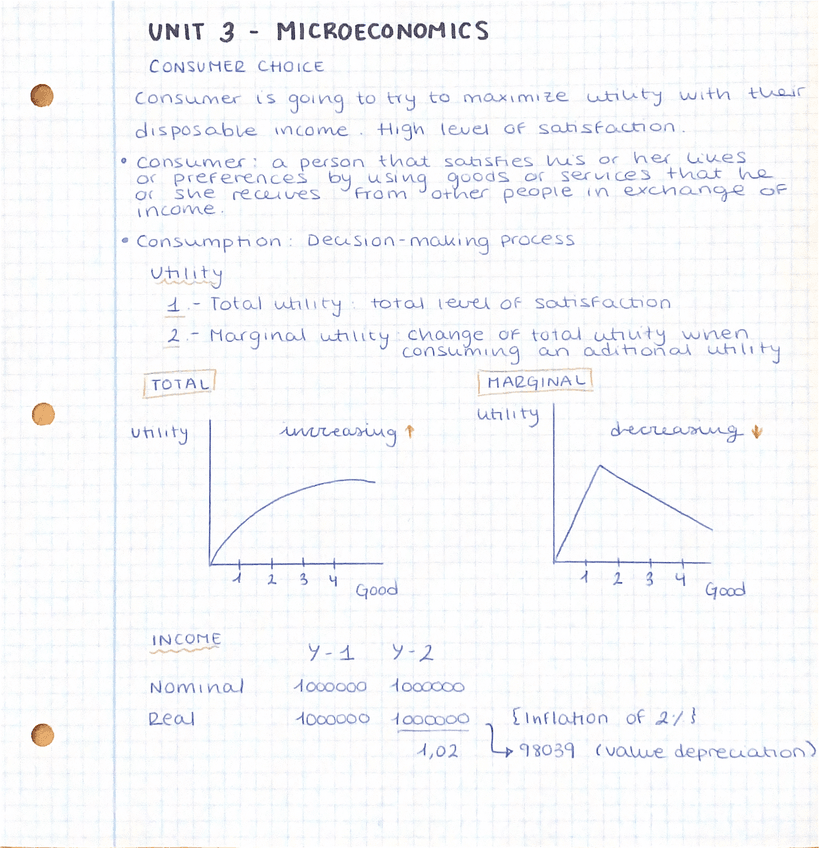 UNIT 3 - MICROECONOMICS
CONSUMER CHOICE
Consumer is going to try to maximize utility with their
disposable income. High level of satisfaction.
• Consumer: a person that satisfies his or her likes
or preferences by using goods or services that he
or she receives from other people in exchange of
income.
• Consumption: Decision-making process
Utility
1.- Total utility: total level of satisfaction
2.- Marginal utility: change of total utility when
consuming an aditional utility
TOTAL
MARGINAL
Utility
increasing ↑
1 2 3 4
Good
Utility
decreasing ↓
1 2 3 4
Good
INCOME
Y-1 Y-2
Nominal 1000000 1000000
Real 1000000 1000000 {Inflation of 2%}
1,02 ↳ 98039 (value depreciation)